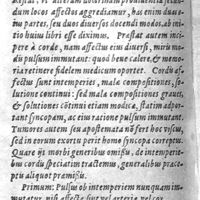 dum locos affectos aggrediamur, hac enim divi-
iu partes, seu duos diversos docendi modos, ab ini-
tio huius libri esse diximus. Praestat autem inci-
pere à corde, nam affectus eius diversi, miris mo-
dis pulsum immutant: quod bene calere, & memo-
ria retinere fidelem medicum oportet. Cordis af-
fectus sunt intemperies, mala compositiones, so-
lutione continui: sed mala compositiones graves,
& solutiones cõtinui etiam modicæ, statim adpor-
tant syncopam, ac eius ratione pulsum immutant.
Tumores autem seu apostemata nõ fert hoc viscus,
sed in eorum exortu perit homo syncopa correptus.
Quare ijs morbi generibus omissis, de intemperie-
bus cordis speciatim tractemus, generalibus præce-
ptis aliquot præmissis.
Primum: Pulsus ob intemperiem nunquam im-
mutatur, nisi affecta sint vel arteria vel cor